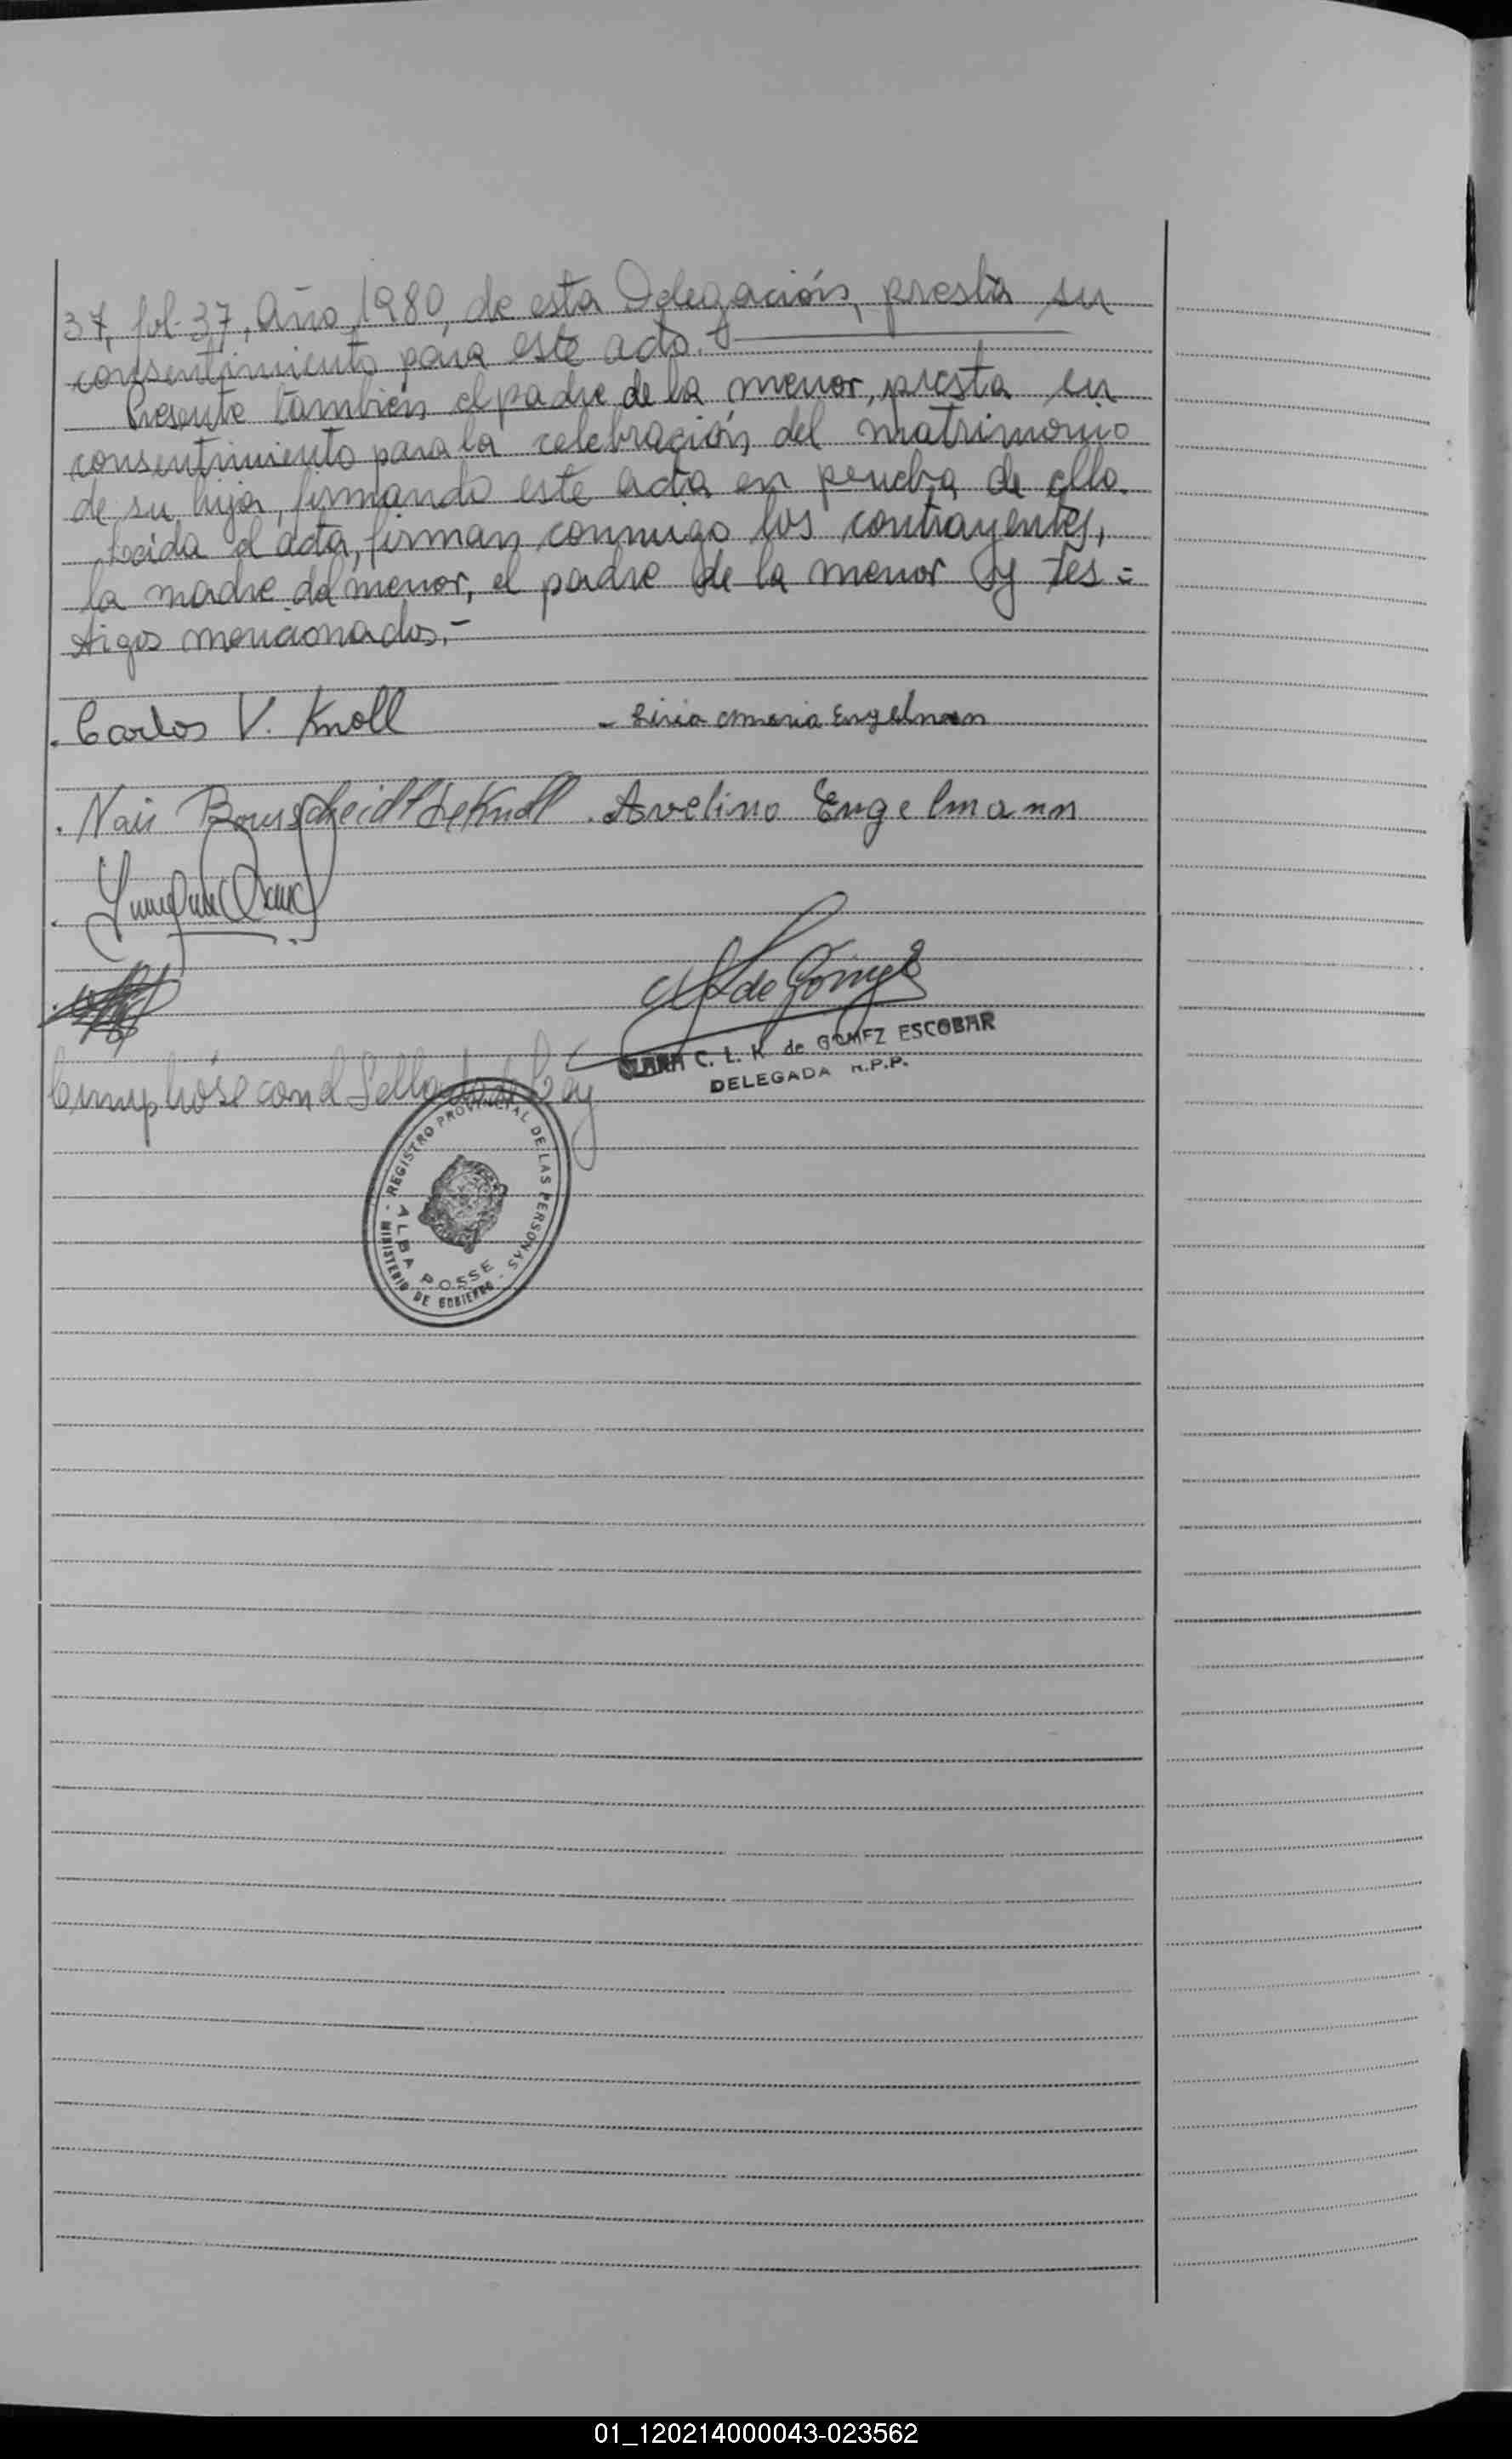 37, fol- 37, Año 1980, de esta Delegación, presta su
consentimiento para este acto.-
Presente también el padre de la menor, presta su
consentimiento para la celebración del matrimonio
de su hija, firmando este acta en prueba de ello.
Leida el acta, firman conmigo los contrayentes,
la madre del menor, el padre de la menor y tes=
tigos mencionados.-
. Carlos V. Knoll - Liria maria Engelman
. Nair Bourscheidt de Knoll . Avelino Engelmann
de Gómez
C. L. K. de GOMEZ ESCOBAR
DELEGADA R.P.P.
Cumplióse con el Sellado de Ley
REGISTRO PROVINCIAL DE LAS PERSONAS - MINISTERIO DE GOBIERNO -
ALBA POSSE
01_120214000043-023562